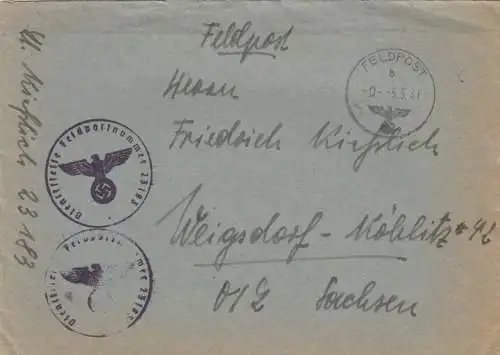 Feldpost
Herrn
Friedrich Kirschlich
Weigsdorf-Köblitz * 42
O/L Sachsen
23183
FELDPOST
b
5.5.41
Dienststelle Feldpostnummer 23183
Dienststelle Feldpostnummer 23183